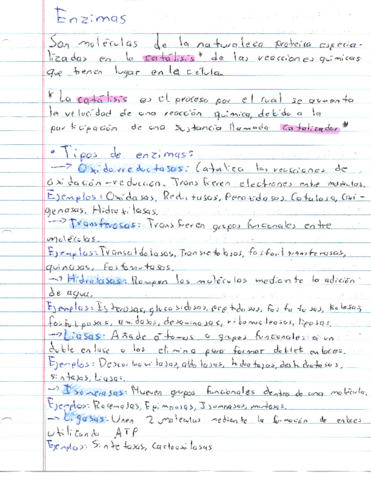 Enzimas
Son moléculas de la naturaleza proteica especia-
lizadas en la catálisis* de las reacciones químicas
que tienen lugar en la célula.
* La catálisis es el proceso por el cual se aumenta
la velocidad de una reacción química, debido a la
participación de una sustancia llamada catalizador*
• Tipos de enzimas:
→ Oxidoreductasas: Cataliza las reacciones de
oxidación-reducción. Transfieren electrones entre moléculas.
Ejemplos: Oxidasas, Reductasas, Peroxidasas, Catalasa, Oxi-
genasas, Hidroxilasas.
→ Transferasas: Transfieren grupos funcionales entre
moléculas.
Ejemplos: Transaldolasas, Transcetolasas, fosforiltransferasas,
quinasas, fosfomutasas.
→ Hidrolasas: Rompen las moléculas mediante la adición
de agua.
Ejemplos: Esterasas, glucosidasas, peptidasas, fosfatasas, tiolasas,
fosfolipasas, amidasas, desaminasas, ribonucleasas, lipasas.
→ Liasas: Añade átomos o grupos funcionales a un
doble enlace o los elimina para formar doble enlaces.
Ejemplos: Descarboxilasas, aldolasas, hidratasas, deshidratasas,
sintasas, liasas.
→ Isomerasas: Mueven grupos funcionales dentro de una molécula.
Ejemplos: Racemasas, Epimerasas, Isomerasas, mutasas.
→ Ligasas: Unen 2 moléculas mediante la formación de enlaces
utilizando ATP
Ejemplos: Sintetasas, Carboxilasas